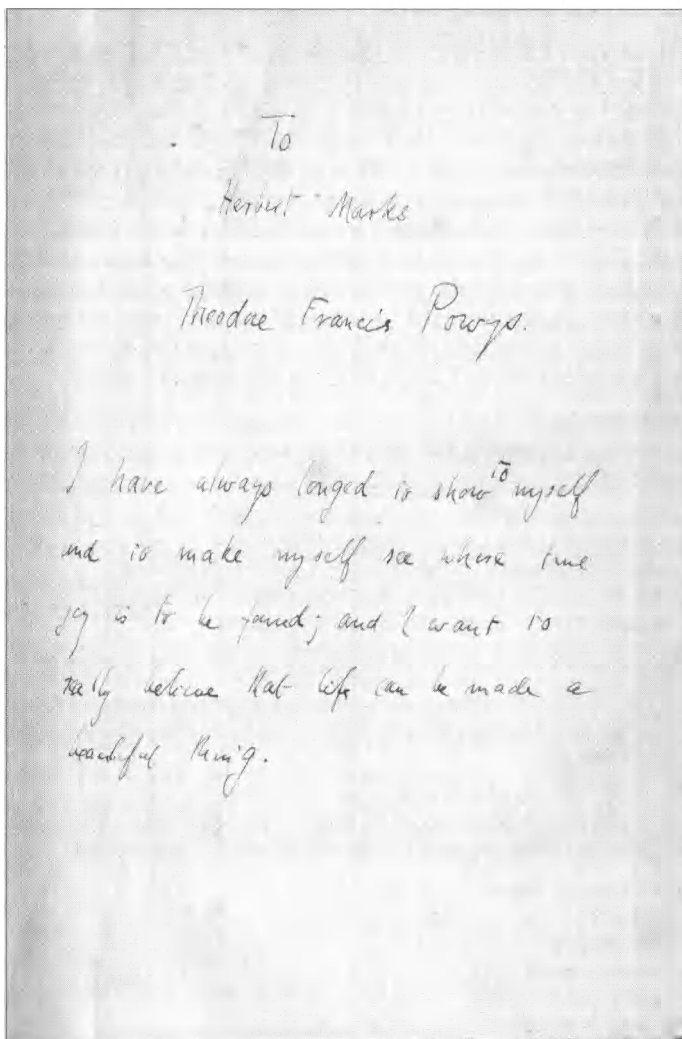 To
Herbert Marks
Theodore Francis Powys.
I have always longed to show to myself
and to make myself see where true
joy is to be found; and I want to
really believe that life can be made a
beautiful thing.